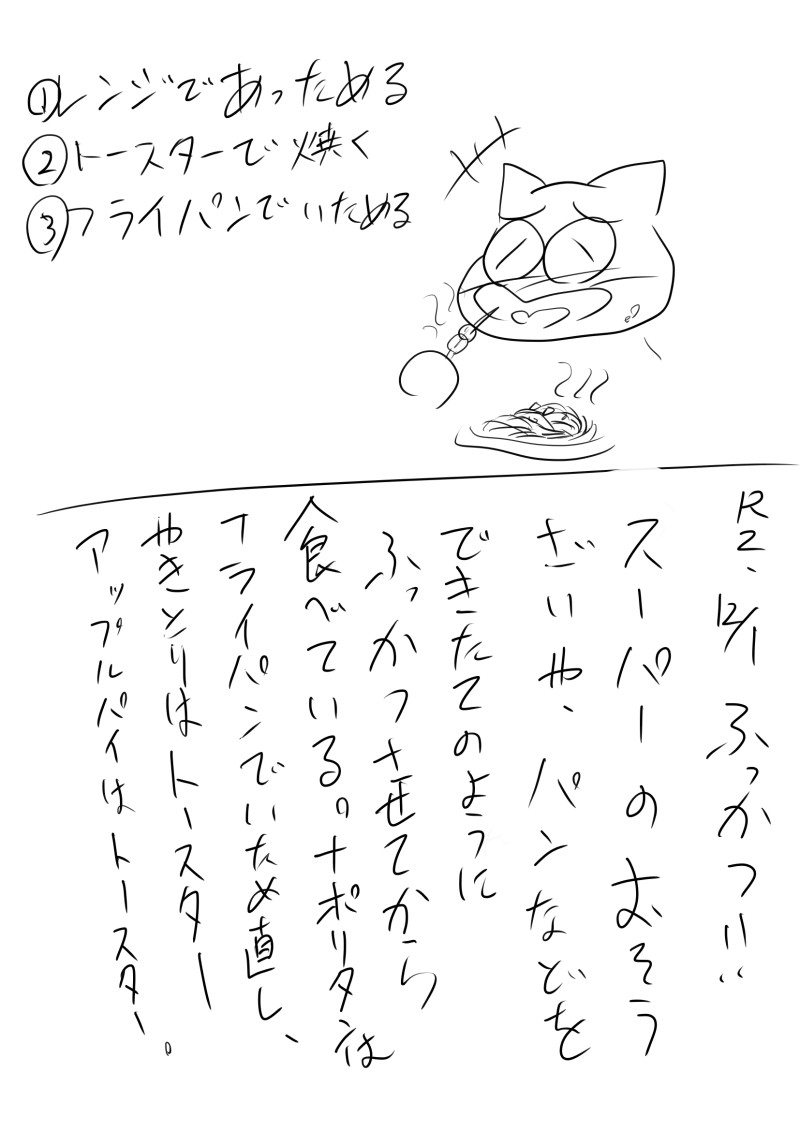 ①レンジであっためる
②トースターで焼く
③フライパンでいためる
R2、12/1 ふっかつ!!
スーパーのおそう
ざいや、パンなどを
できたてのように
ふっかつさせてから
食べている。ナポリタンは
フライパンでいため直し、
やきとりはトースター
アップルパイはトースター。